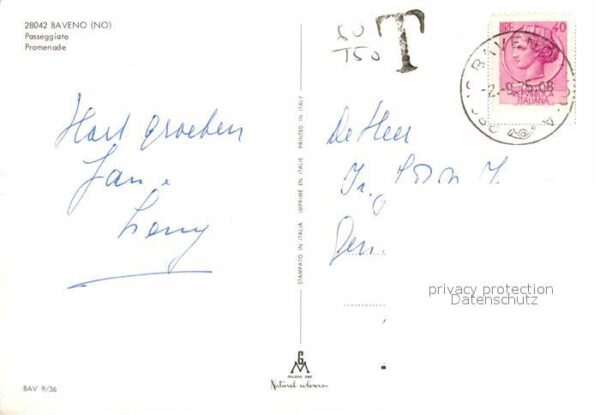 28042 BAVENO (NO)
Passeggiata
Promenade
50
T50
T
40
REPUBBLICA
ITALIANA
BAVENO
-2.-9.75.08
Hart. groeten
Jan e
De Heer
Den
STAMPATO IN ITALIA IMPRIMÉ EN ITALIE PRINTED IN ITALY
privacy protection
Datenschutz
G
M
Natural colours
BAV 9/36